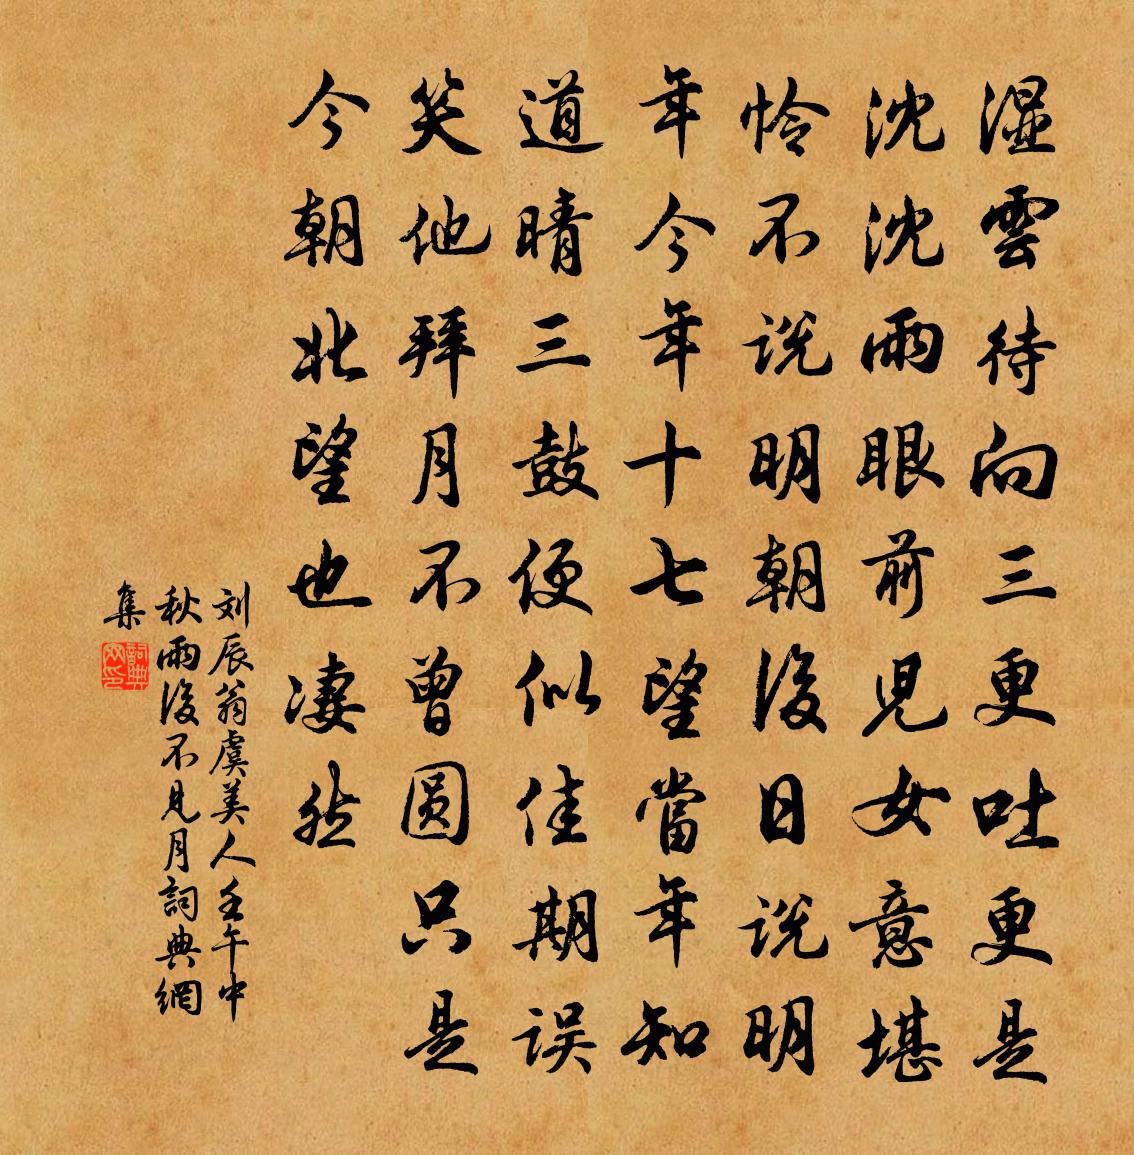 濕雲待向三更吐更是
沈沈雨眼前児女意堪
怜不说明朝後日说明
年今年十七望當年知
道晴三鼓便似佳期误
笑他拜月不曾圆只是
今朝北望也凄然
刘辰翁虞美人壬午中
秋雨後不见月詞典網
集
詞典网印